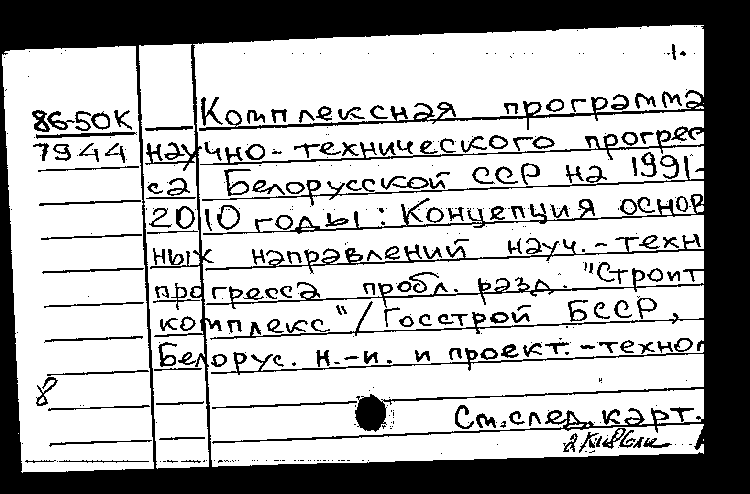 1.
86-50К Комплексная программа
7944 научно-технического прогрес
са Белорусской ССР на 1991-
2010 годы: Концепция основ
ных направлений науч.-техн
прогресса пробл. разд. "Строит
комплекс" / Госстрой БССР,
Белорус. н.-и. и проект.-технол
8
См. след. карт.